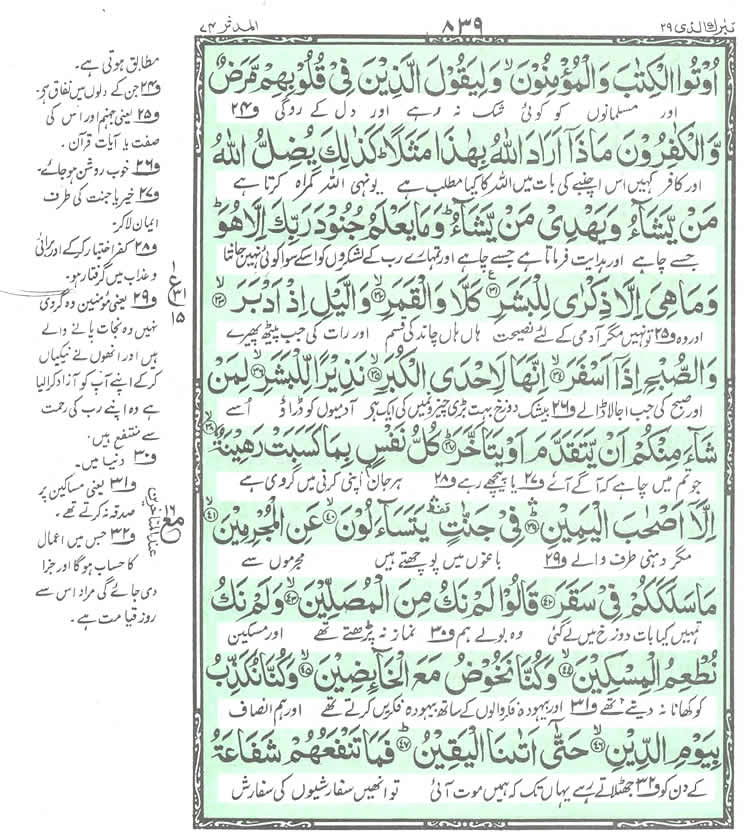 تبٰرك الذی ٢٩
٨٣٩
المدثر ٧٤
اُوْتُوا الْكِتٰبَ وَالْمُؤْمِنُوْنَ ۙ وَلِیَقُوْلَ الَّذِیْنَ فِیْ قُلُوْبِهِمْ مَّرَضٌ
اور مسلمانوں کو کوئی شک نہ رہے اور دل کے روگی و۲۴
وَّالْكٰفِرُوْنَ مَاذَاۤ اَرَادَ اللّٰهُ بِهٰذَا مَثَلًا ؕ كَذٰلِكَ یُضِلُّ اللّٰهُ
اور کافر کہیں اس اچنبے کی بات میں اللہ کا کیا مطلب ہے یونہی اللہ گمراہ کرتا ہے
مَنْ یَّشَآءُ وَیَهْدِیْ مَنْ یَّشَآءُ ؕ وَمَا یَعْلَمُ جُنُوْدَ رَبِّكَ اِلَّا هُوَ ؕ
جسے چاہے اور ہدایت فرماتا ہے جسے چاہے اور تمہارے رب کے لشکروں کو اسکے سوا کوئی نہیں جانتا
وَمَا هِیَ اِلَّا ذِكْرٰی لِلْبَشَرِ ﴿۳۱﴾ كَلَّا وَالْقَمَرِ ﴿۳۲﴾ وَالَّیْلِ اِذْ اَدْبَرَ ﴿۳۳﴾
اور وہ و۲۵ تو نہیں مگر آدمی کے لئے نصیحت ہاں ہاں چاند کی قسم اور رات کی جب پیٹھ پھیرے
وَالصُّبْحِ اِذَاۤ اَسْفَرَ ﴿۳۴﴾ اِنَّهَا لَاِحْدَی الْكُبَرِ ﴿۳۵﴾ نَذِیْرًا لِّلْبَشَرِ ﴿۳۶﴾ لِمَنْ
اور صبح کی جب اجالا ڈالے و۲۶ بیشک دوزخ بہت بڑی چیزوں میں کی ایک ہے آدمیوں کو ڈراؤ اُسے
شَآءَ مِنْكُمْ اَنْ یَّتَقَدَّمَ اَوْ یَتَاَخَّرَ ﴿۳۷﴾ كُلُّ نَفْسٍۭ بِمَا كَسَبَتْ رَهِیْنَةٌ ﴿۳۸﴾
جو تم میں چاہے کہ آگے آئے و۲۷ یا پیچھے رہے و۲۸ ہر جان اپنی کرنی میں گروی ہے
اِلَّاۤ اَصْحٰبَ الْیَمِیْنِ ﴿۳۹﴾ فِیْ جَنّٰتٍ ۛ یَتَسَآءَلُوْنَ ﴿۴۰﴾ عَنِ الْمُجْرِمِیْنَ ﴿۴۱﴾
مگر دہنی طرف والے و۲۹ باغوں میں پوچھتے ہیں مجرموں سے
مَا سَلَكَكُمْ فِیْ سَقَرَ ﴿۴۲﴾ قَالُوْا لَمْ نَكُ مِنَ الْمُصَلِّیْنَ ﴿۴۳﴾ وَلَمْ نَكُ
تمہیں کیا بات دوزخ میں لے گئی وہ بولے ہم و۳۰ نماز نہ پڑھتے تھے اور مسکین
نُطْعِمُ الْمِسْكِیْنَ ﴿۴۴﴾ وَكُنَّا نَخُوْضُ مَعَ الْخَآىِٕضِیْنَ ﴿۴۵﴾ وَكُنَّا نُكَذِّبُ
کو کھانا نہ دیتے تھے و۳۱ اور بیہودہ فکر والوں کے ساتھ بیہودہ فکریں کرتے تھے اور ہم انصاف
بِیَوْمِ الدِّیْنِ ﴿۴۶﴾ حَتّٰۤی اَتٰىنَا الْیَقِیْنُ ﴿۴۷﴾ فَمَا تَنْفَعُهُمْ شَفَاعَةُ
کے دن کو و۳۲ جھٹلاتے رہے یہاں تک کہ ہمیں موت آئی تو انھیں سفارشیوں کی سفارش
مطابق ہوتی ہے۔
و۲۴ جن کے دلوں میں نفاق ہے۔
و۲۵ یعنی جہنم اور اس کی
صفت یا آیات قرآن۔
و۲۶ خوب روشن ہو جائے۔
و۲۷ خیر یا جنت کی طرف
ایمان لا کر۔
و۲۸ کفر اختیار کر کے اور برائی
و عذاب میں گرفتار ہو۔
و۲۹ یعنی مؤمنین وہ گروی
نہیں وہ نجات پانے والے
ہیں اور انھوں نے نیکیاں
کر کے اپنے آپ کو آزاد کرا لیا
ہے وہ اپنے رب کی رحمت
سے منتفع ہیں۔
و۳۰ دنیا میں۔
و۳۱ یعنی مساکین پر
صدقہ نہ کرتے تھے۔
و۳۲ جس میں اعمال
کا حساب ہوگا اور جزا
دی جائے گی مراد اس سے
روز قیامت ہے۔
١
ع
٣١
١٥
١٦
مع